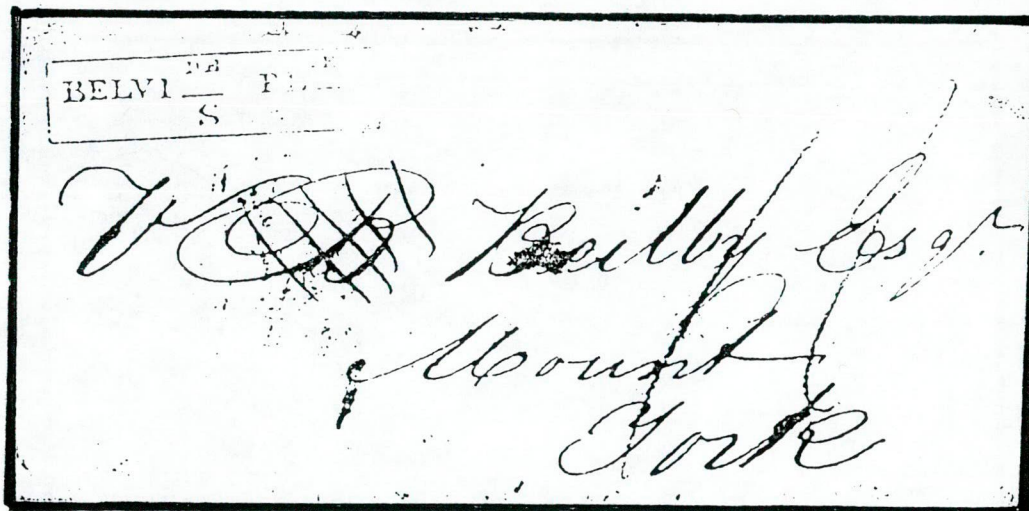 BELVI
S
V Beilby Esqr.
Mount
York